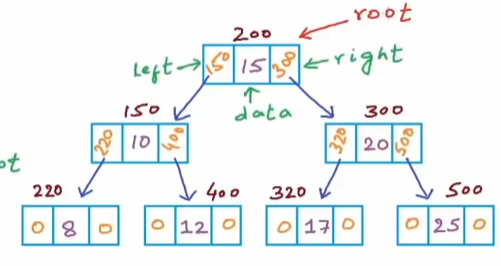 root
200
left 150 15 300 right
data
150
220 10 400
300
320 20 500
ot
220
0 8 0
400
0 12 0
320
0 17 0
500
0 25 0